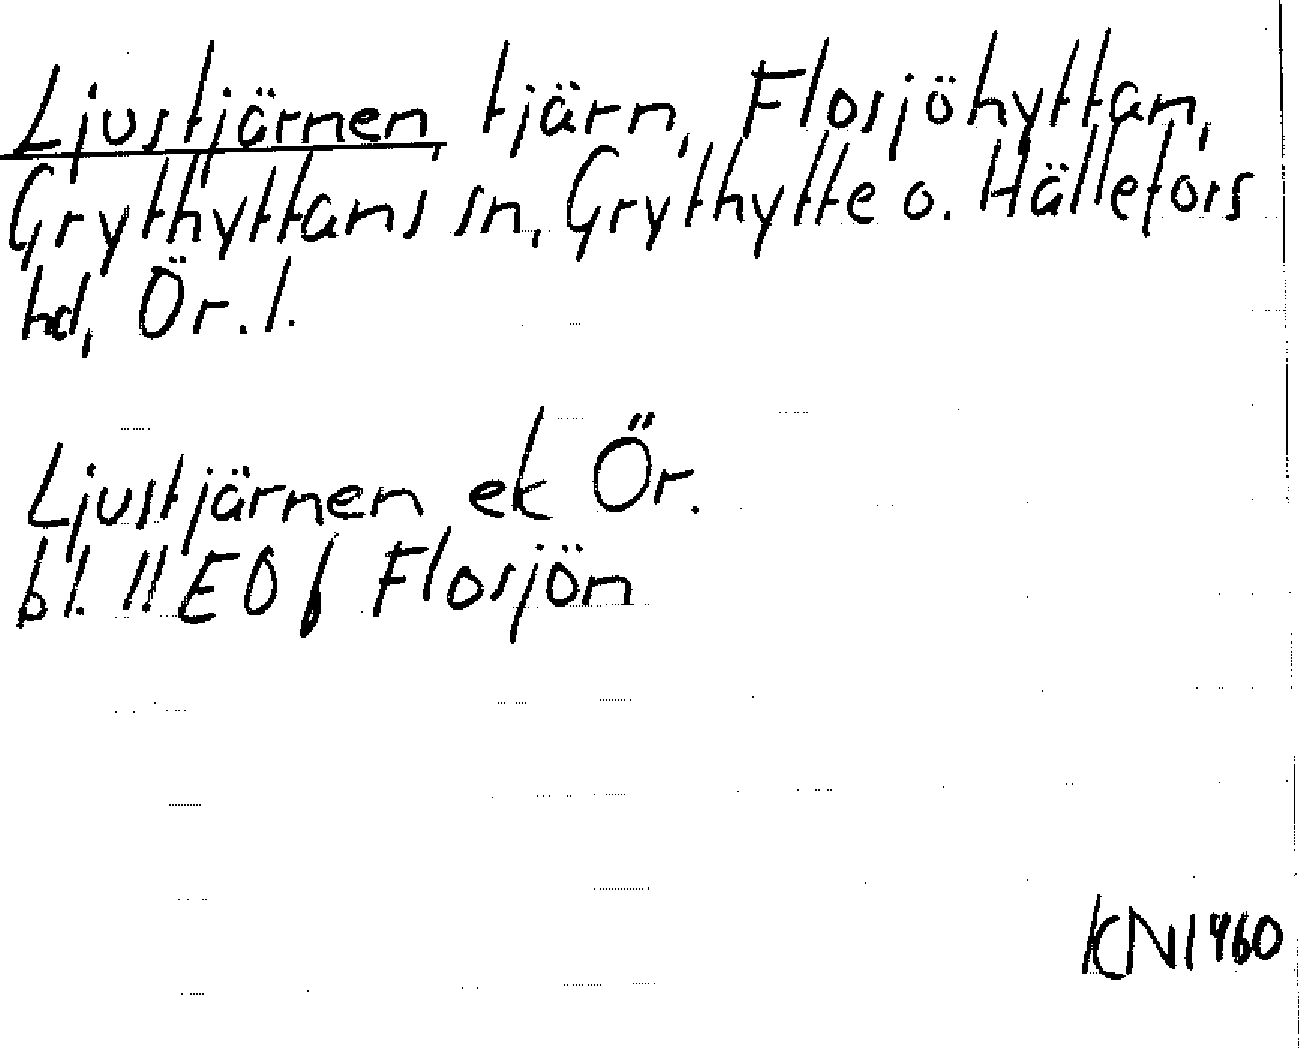 Ljustjärnen, tjärn, Flosjöhyttan,
Grythyttans sn, Grythytte o. Hällefors
hd, Ör. l.
Ljustjärnen ek Ör.
bl. 11 E0f Flosjön
KN1960